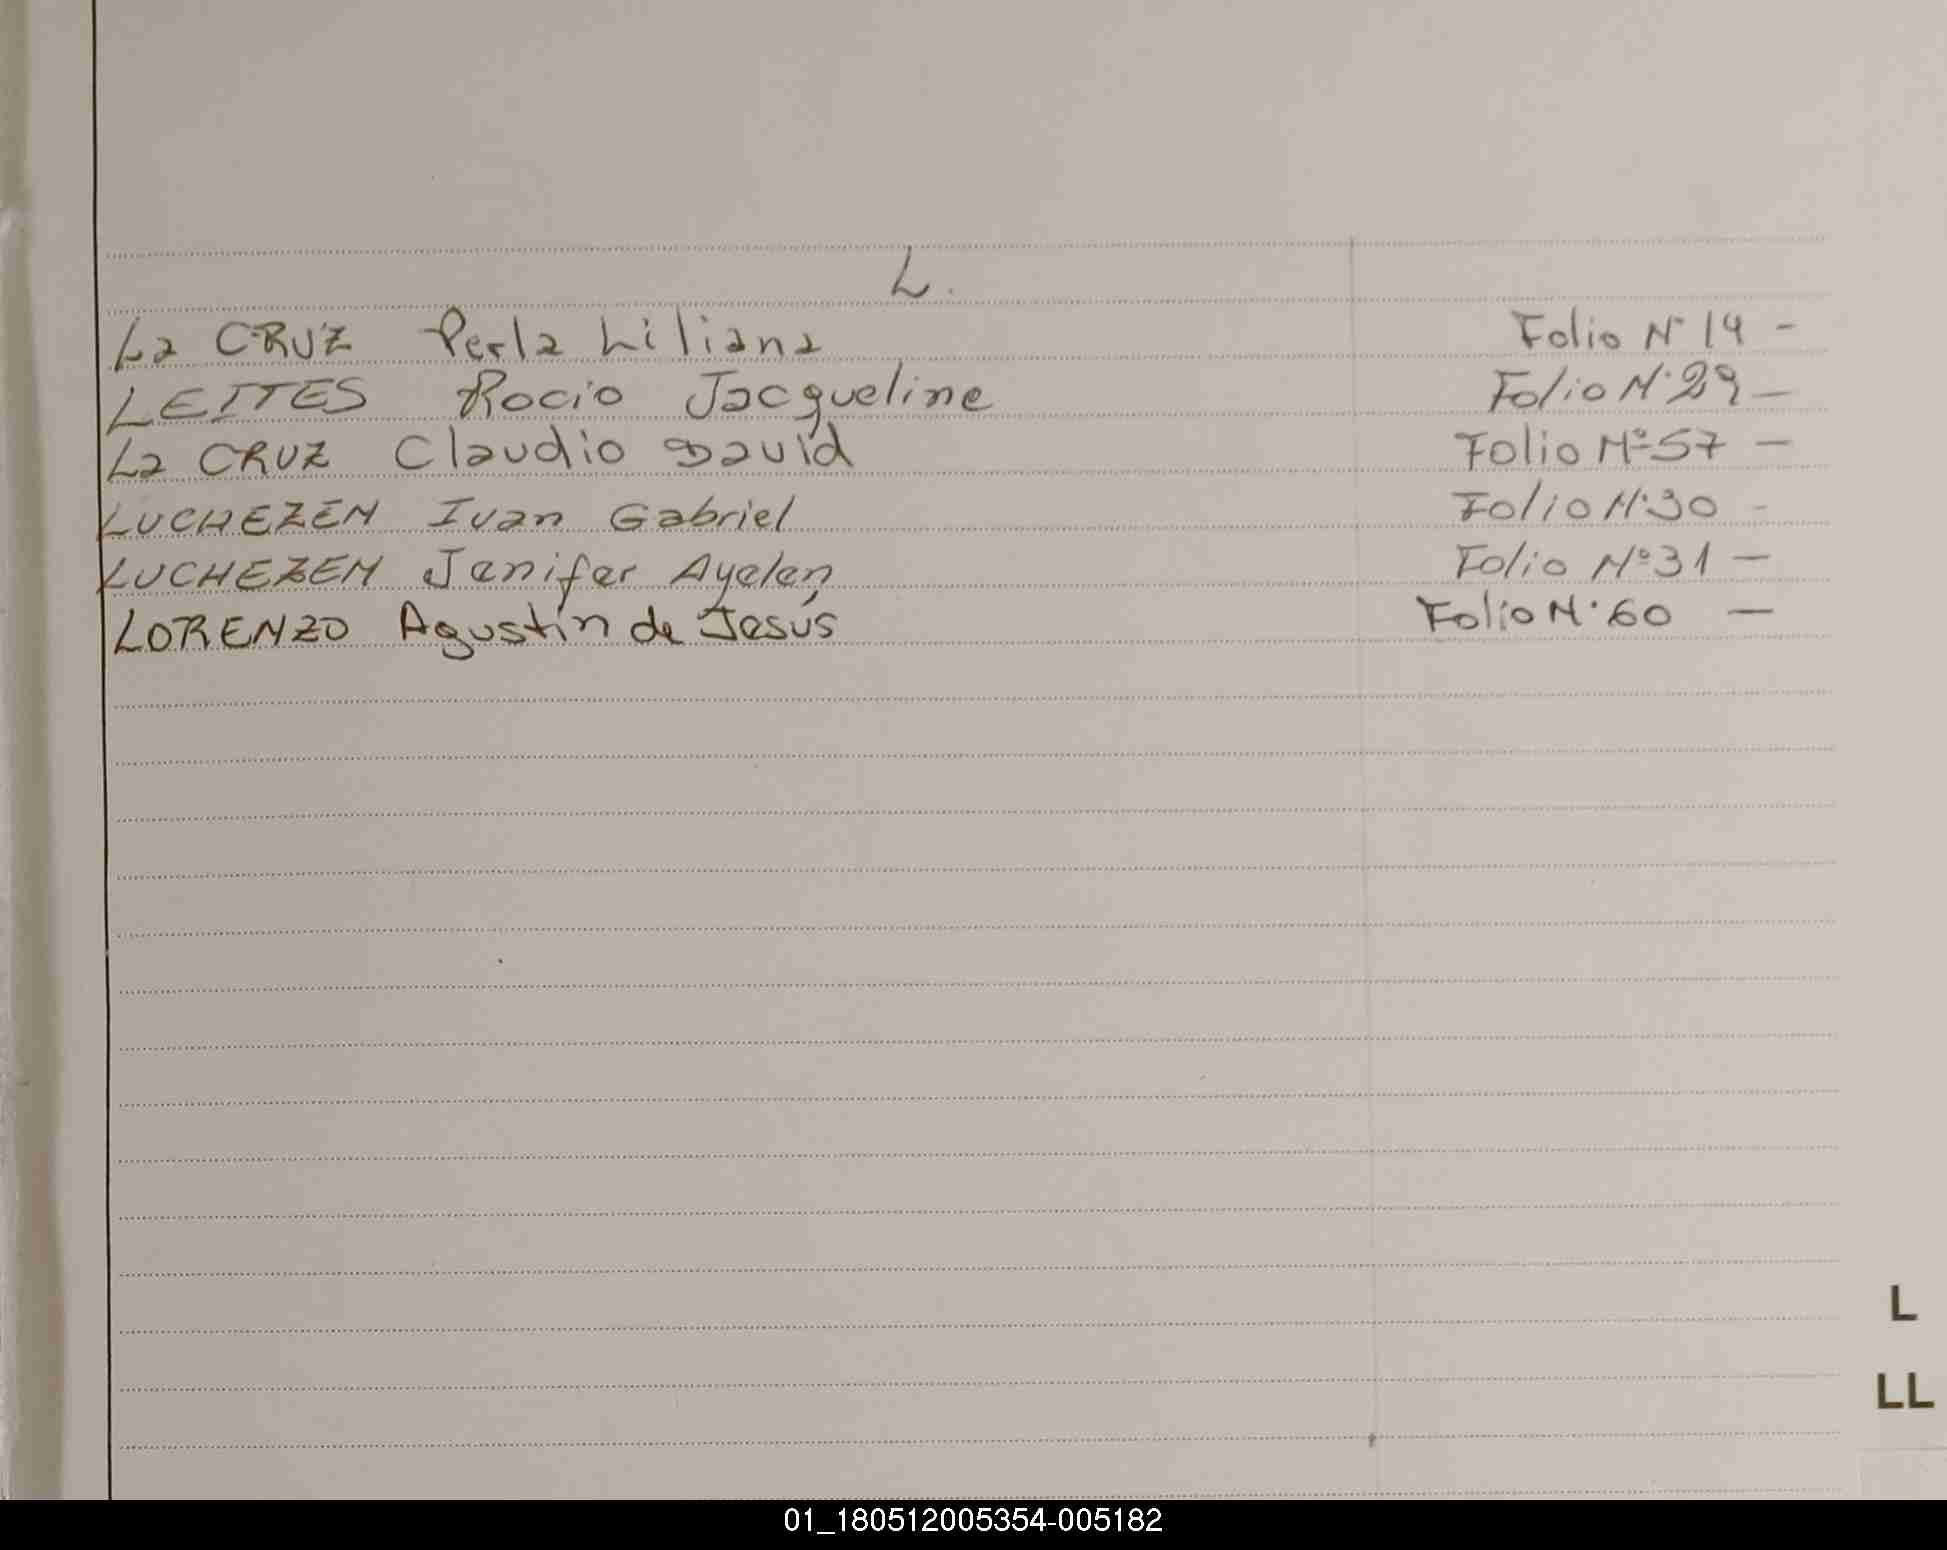 L.
La CRUZ Perla Liliana Folio N° 14 -
LEITES Rocio Jacqueline Folio N° 29 -
La CRUZ Claudio David Folio N° 57 -
LUCHEZEN Ivan Gabriel Folio N° 30 -
LUCHEZEN Jenifer Ayelen Folio N° 31 -
LORENZO Agustín de Jesús Folio N° 60 -
L
LL
01_180512005354-005182